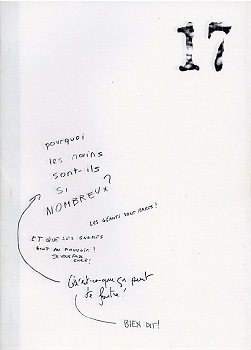 17
pourquoi
les nains
sont-ils
si
NOMBREUX?
LES GÉANTS SONT RARES!
ET QUE LES GNOMES
SONT AU POUVOIR!
JE VOUS FAIS
Qu'est-ce que ça peut
te foutre!
BIEN DIT!